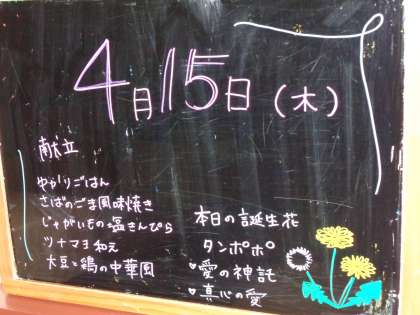 4月15日(木)
献立
ゆかりごはん
さばのごま風味焼き
じゃがいもの塩きんぴら
ツナマヨ和え
大豆と鶏の中華風
本日の誕生花
タンポポ
♥愛の神託
♥真心の愛